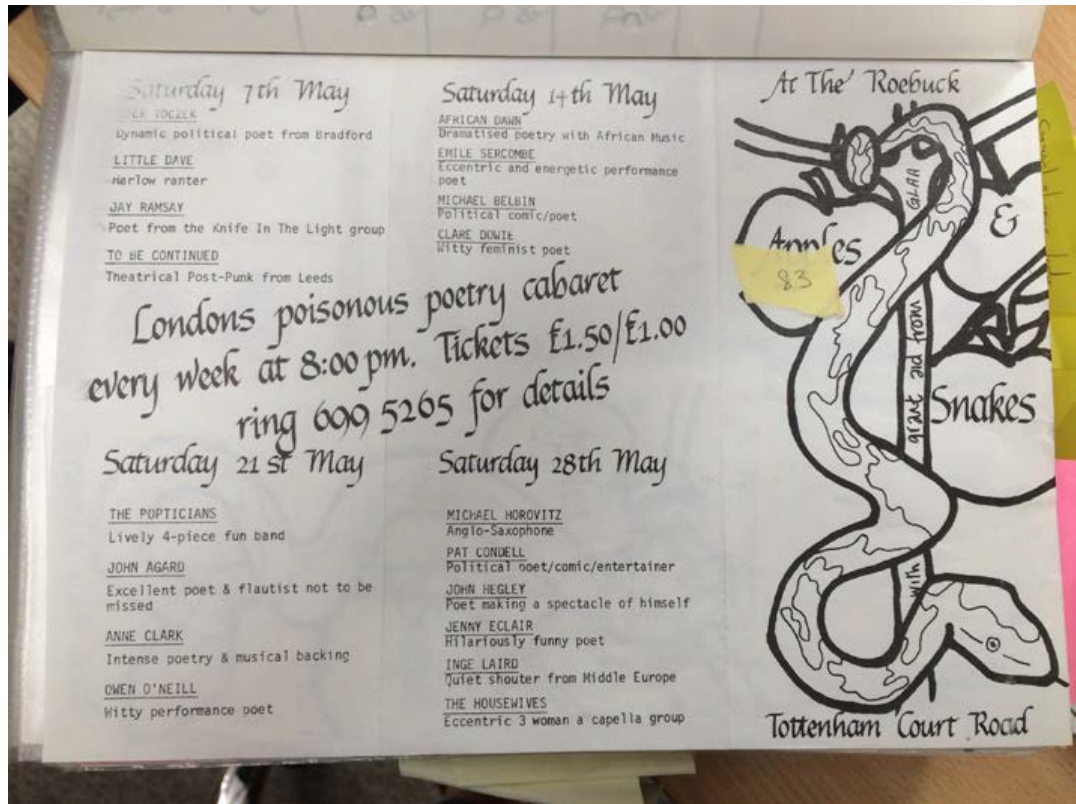 Saturday 7th May
Dynamic political poet from Bradford
LITTLE DAVE
Harlow ranter
JAY RAMSAY
Poet from the Knife In The Light group
TO BE CONTINUED
Theatrical Post-Punk from Leeds
Saturday 14th May
AFRICAN DAWN
Dramatised poetry with African Music
EMILE SERCOMBE
Eccentric and energetic performance
poet
MICHAEL BELBIN
Political comic/poet
CLARE DOWIE
Witty feminist poet
Londons poisonous poetry cabaret
every week at 8:00 pm. Tickets £1.50/£1.00
ring 699 5265 for details
Saturday 21st May
THE POPTICIANS
Lively 4-piece fun band
JOHN AGARD
Excellent poet & flautist not to be
missed
ANNE CLARK
Intense poetry & musical backing
OWEN O'NEILL
Witty performance poet
Saturday 28th May
MICHAEL HOROVITZ
Anglo-Saxophone
PAT CONDELL
Political poet/comic/entertainer
JOHN HEGLEY
Poet making a spectacle of himself
JENNY ECLAIR
Hilariously funny poet
INGE LAIRD
Quiet shouter from Middle Europe
THE HOUSEWIVES
Eccentric 3 woman a capella group
At The Roebuck
Apples
83
&
Snakes
with grant aid from GLAA
Tottenham Court Road